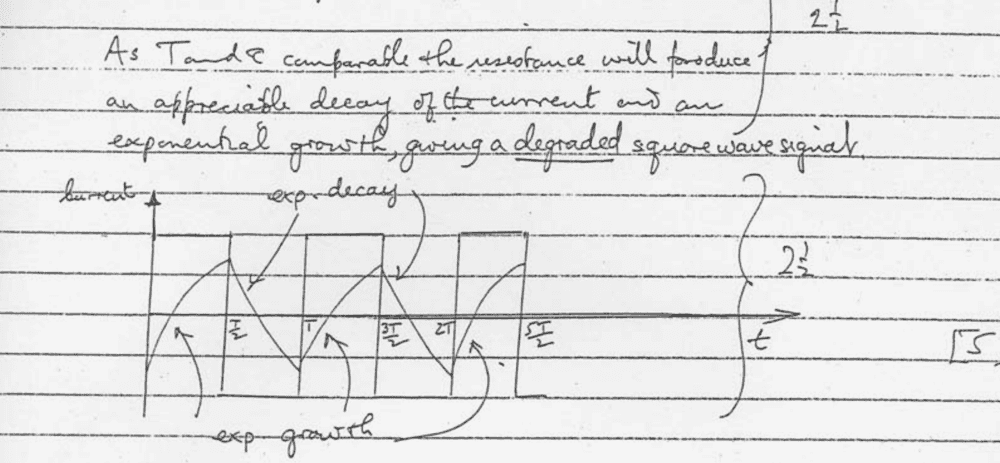 2 1/2
As T and τ comparable the resistance will produce
an appreciable decay of the current and an
exponential growth, giving a degraded square wave signal.
Current
exp. decay
2 1/2
T/2
T
3T/2
2T
5T/2
t
[5
exp growth